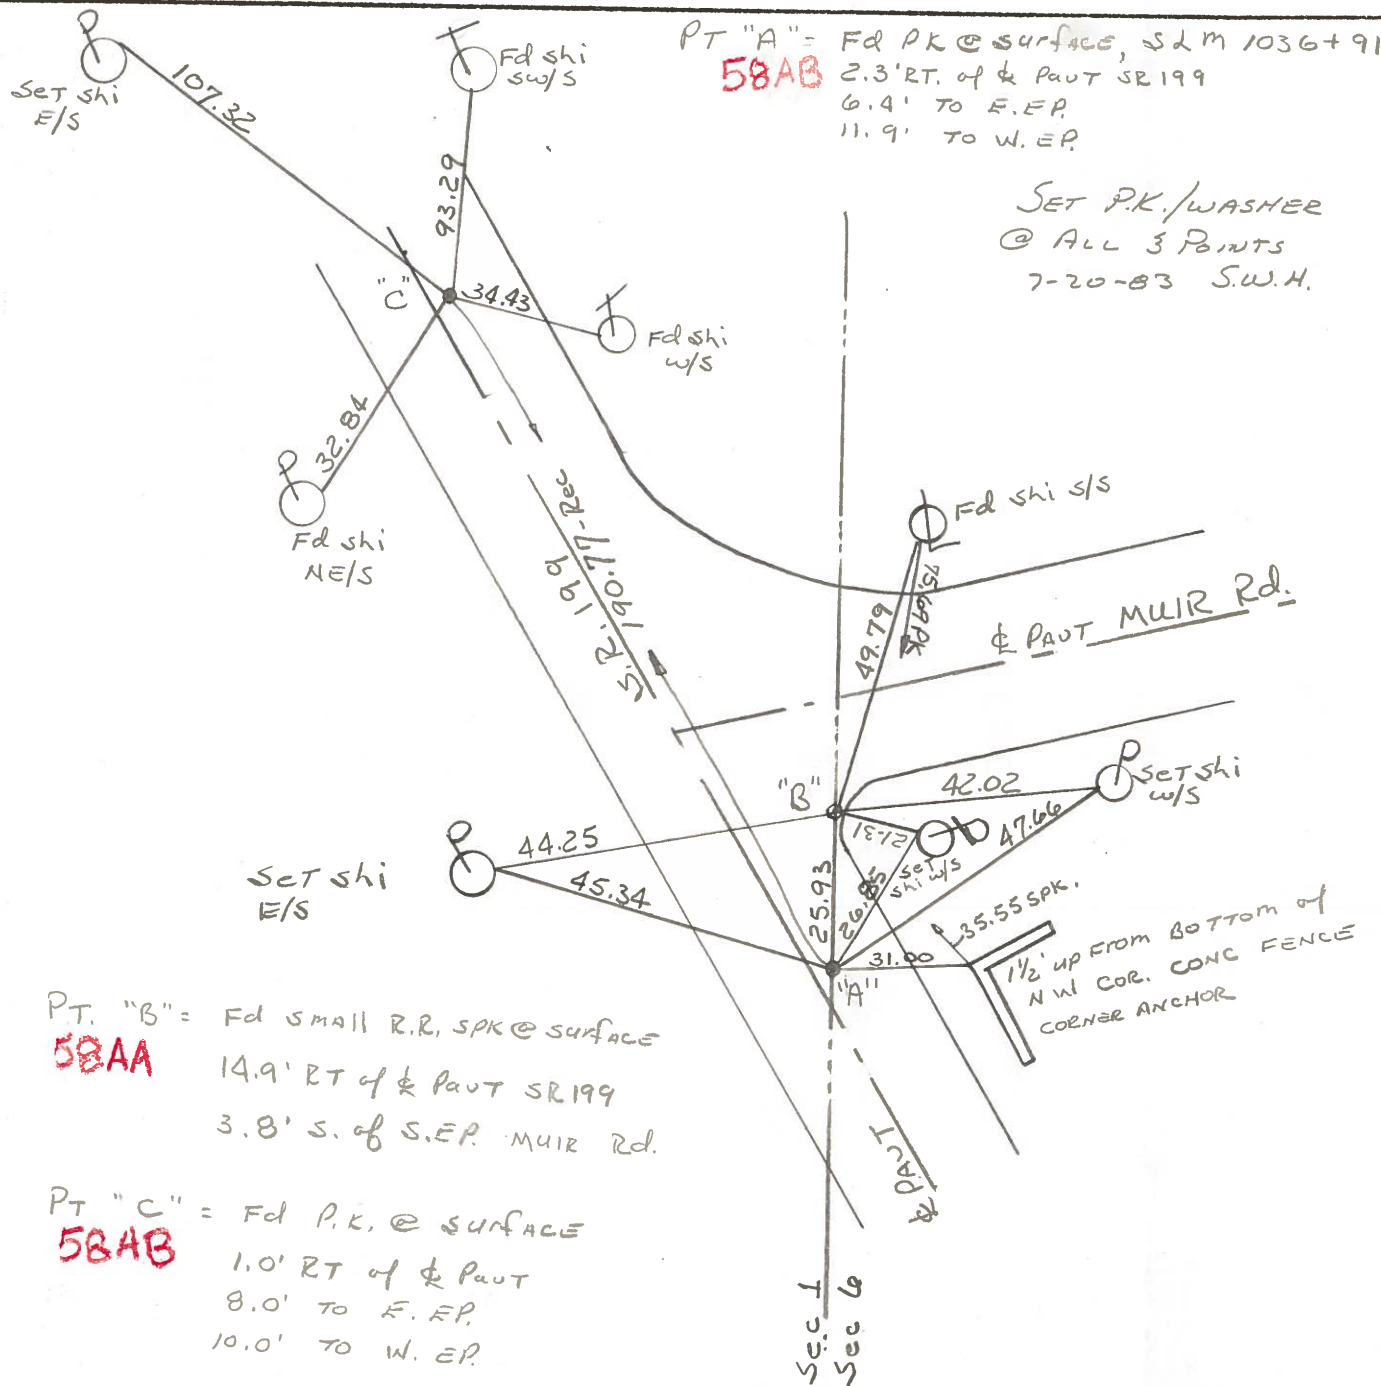 PT "A" = Fd PK @ surface, SLM 1036+91
58AB 2.3' RT. of ℄ Pavt SR 199
6.4' TO E. EP.
11.9' TO W. EP.
SET P.K./WASHER
@ ALL 3 POINTS
7-20-83 S.W.H.
P
Set shi
E/S
107.32
T
Fd shi
SW/S
93.29
"C"
34.43
T
Fd shi
W/S
32.84
P
Fd shi
NE/S
190.77-Rec
S.R. 199
Fd shi S/S
75.69 PK
49.79
℄ PAVT MUIR Rd.
"B"
42.02
P
Set shi
W/S
21.31
P
Set
shi W/S
47.66
P
44.25
45.34
Set shi
E/S
25.93
26.85
31.00
"A"
35.55 SPK.
1½' up FROM BOTTOM of
NW COR. CONC FENCE
CORNER ANCHOR
℄ PAVT
PT. "B" = Fd SMALL R.R. SPK @ surface
58AA 14.9' RT of ℄ Pavt SR 199
3.8' S. of S. EP. MUIR Rd.
PT "C" = Fd P.K. @ surface
58AB 1.0' RT of ℄ Pavt
8.0' TO E. EP.
10.0' TO W. EP.
Sec 1
Sec 6